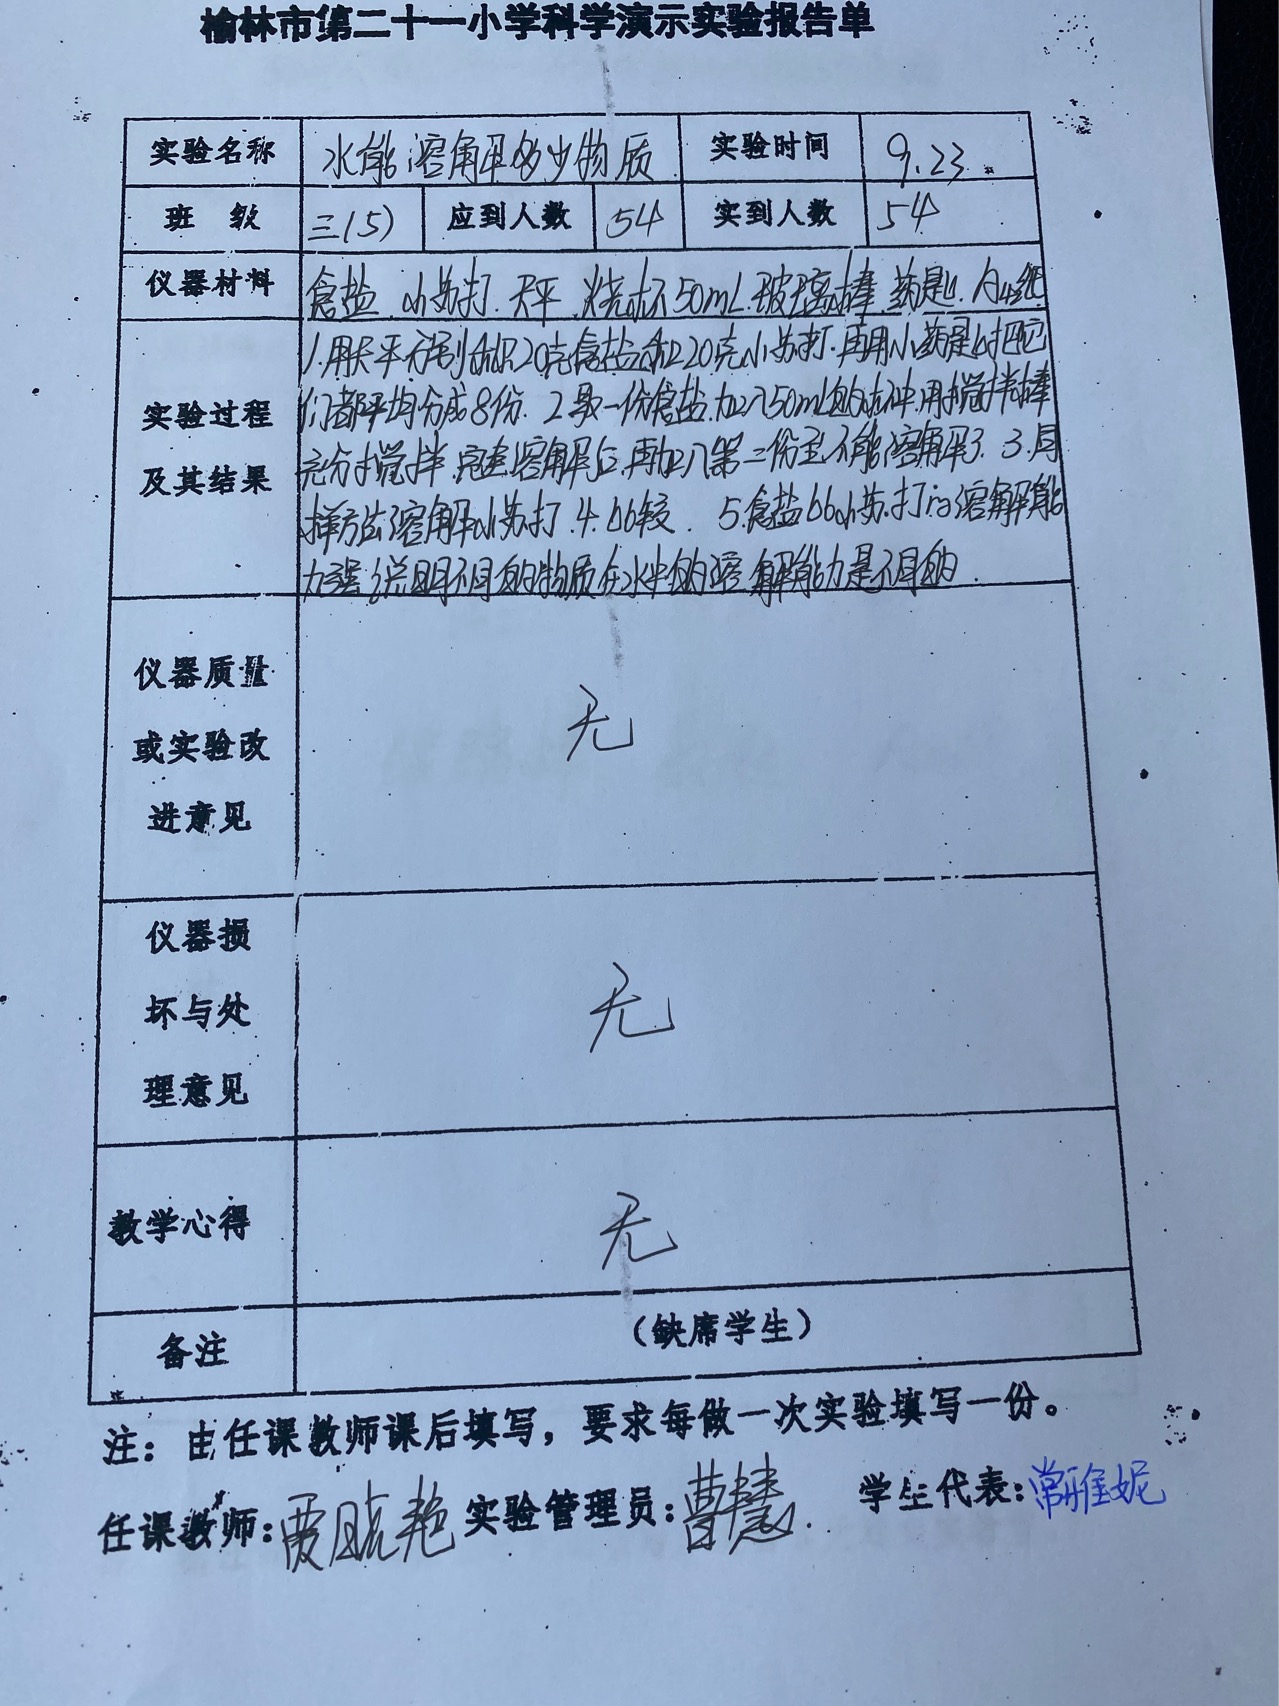 榆林市第二十一小学科学演示实验报告单
实验名称 水能溶解多少物质 实验时间 9.23
班 级 三(5) 应到人数 54 实到人数 54
仪器材料 食盐.小苏打.天平.烧杯50mL.玻璃棒.药匙.A4纸
1.用天平分别称取20克食盐和20克小苏打.再用小药匙把它
实验过程 们都平均分成8份.2取一份食盐.加入50mL的水中.用搅拌棒
及其结果 充分搅拌.完全溶解后.再加入第二份至不能溶解了.3.同
样方法溶解小苏打.4.比较. 5.食盐比小苏打的溶解能
力强说明不同的物质在水中的溶解能力是不同的.
仪器质量
或实验改 无
进意见
仪器损
坏与处 无
理意见
教学心得 无
备注 (缺席学生)
注：由任课教师课后填写，要求每做一次实验填写一份。
任课教师:贾晓艳 实验管理员:曹慧. 学生代表:常雅妮